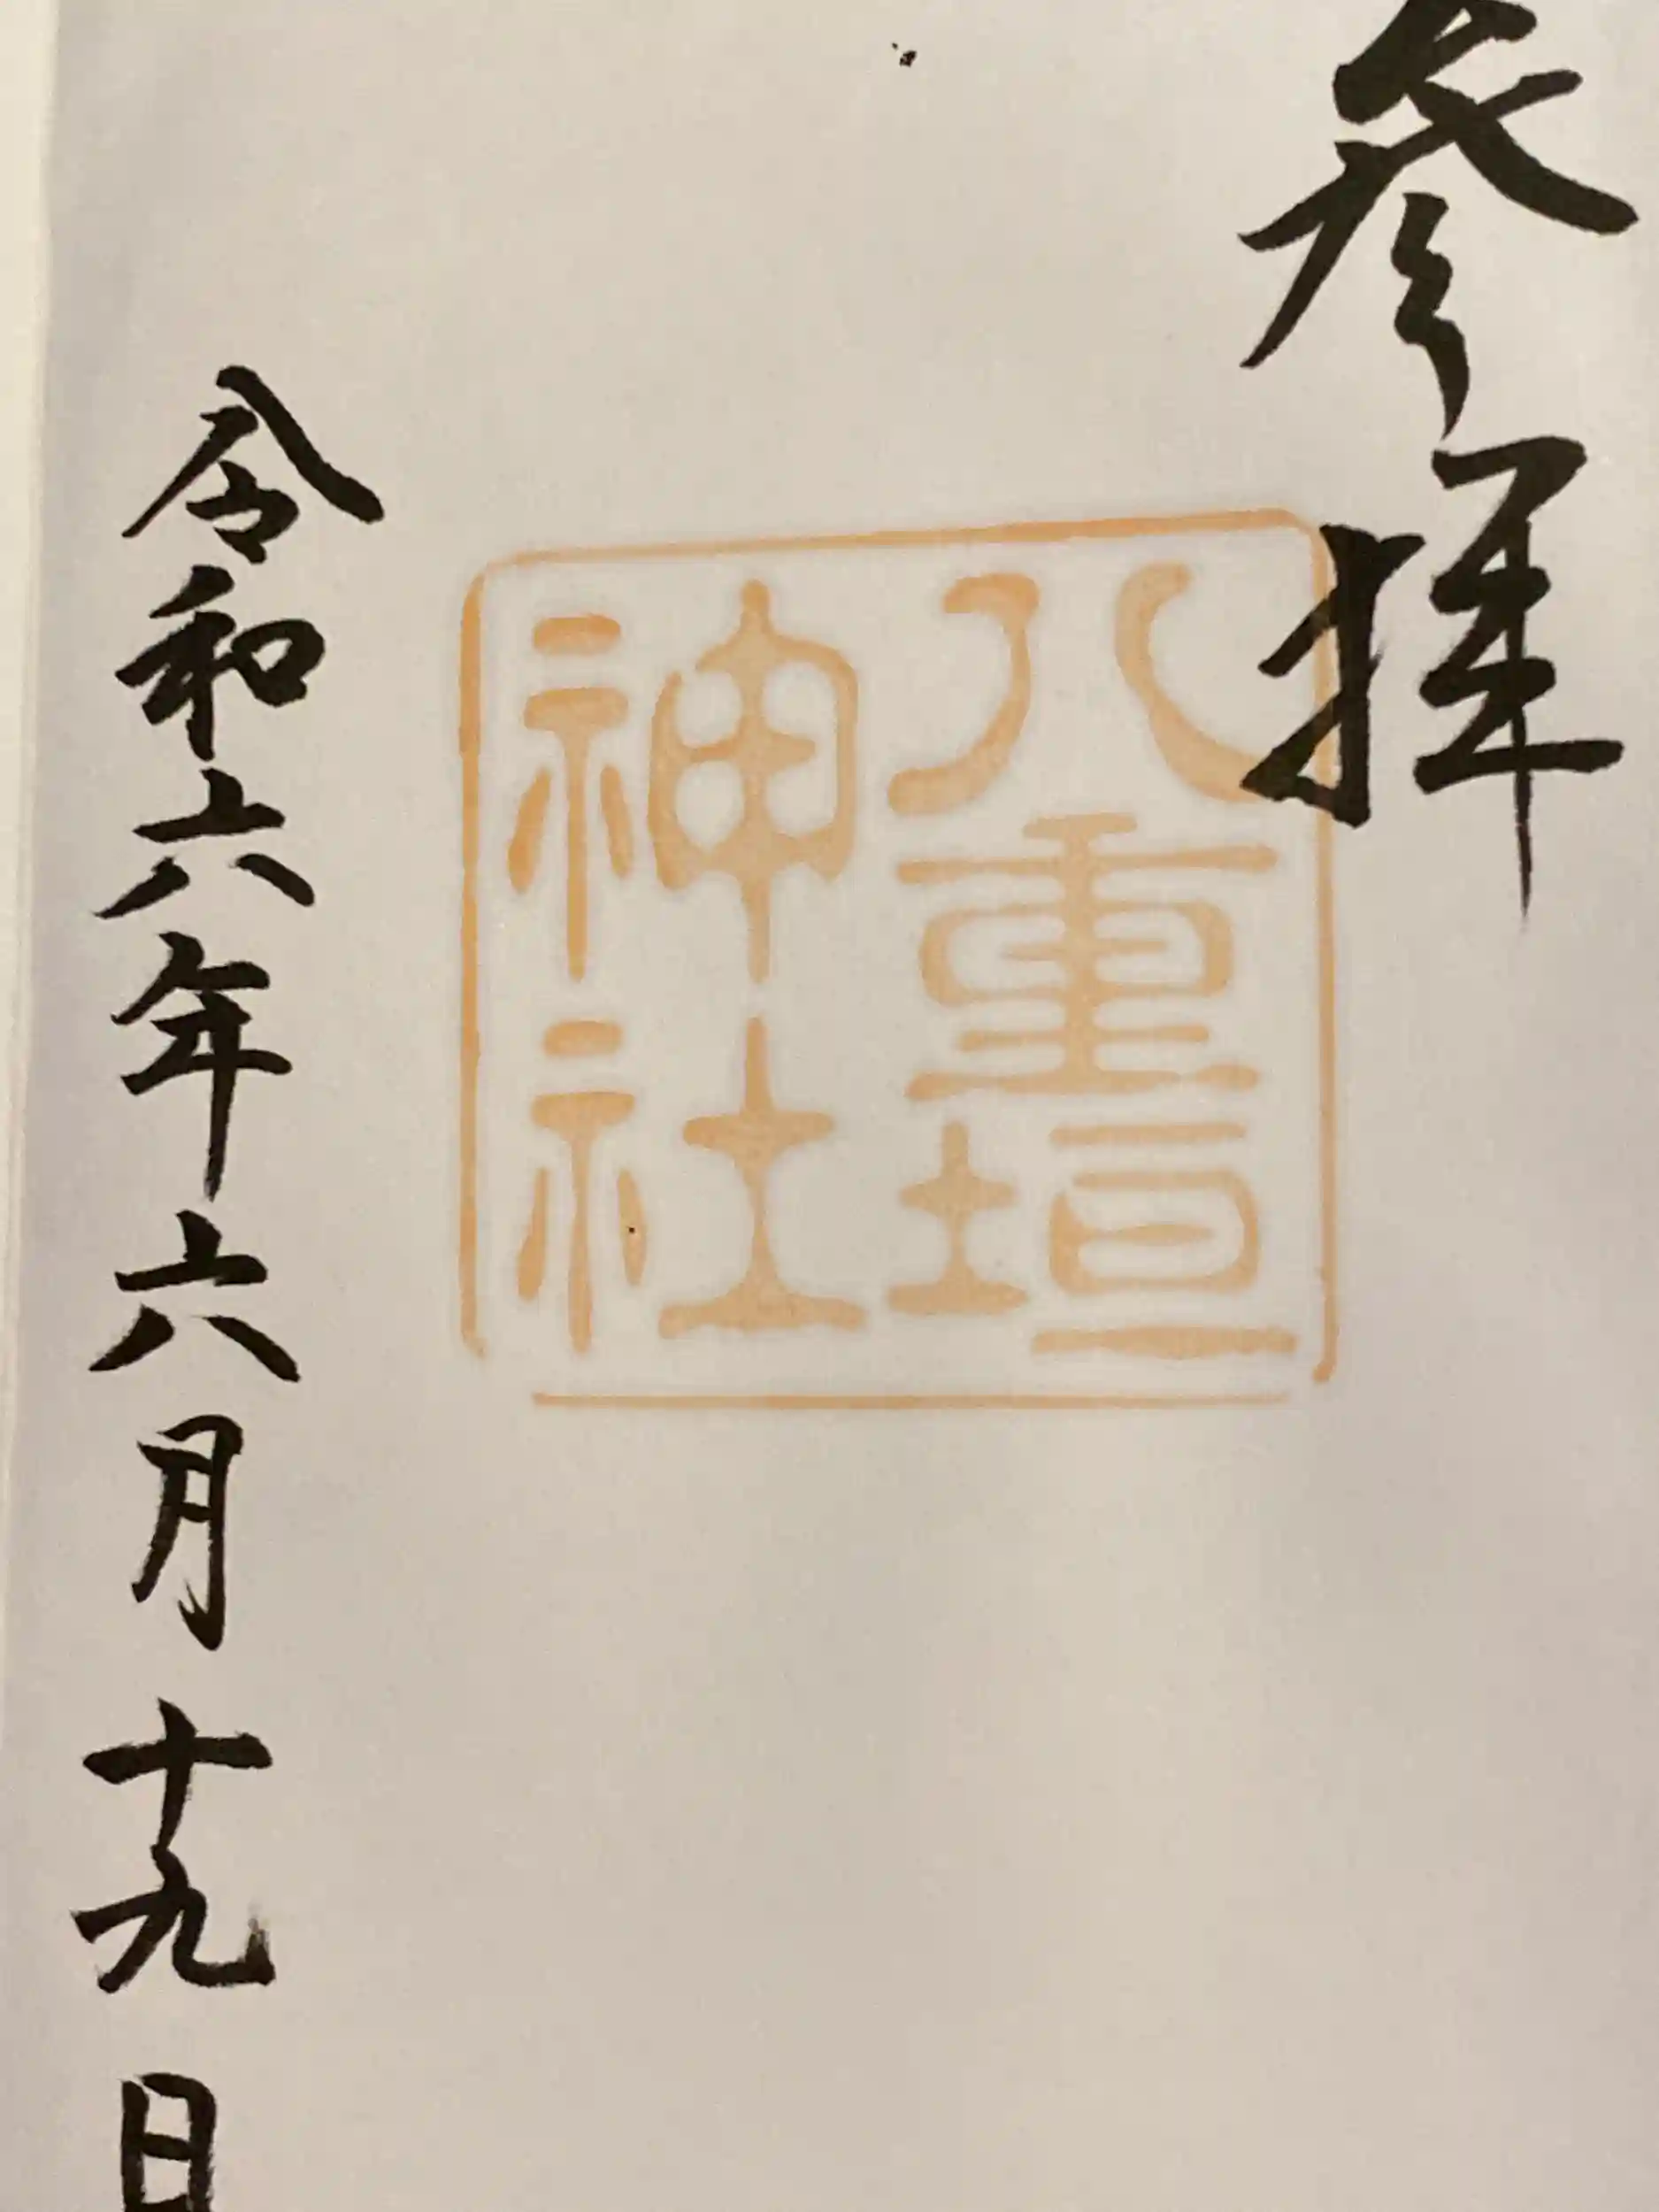 参拝
八重垣
神社
令和六年六月十九日